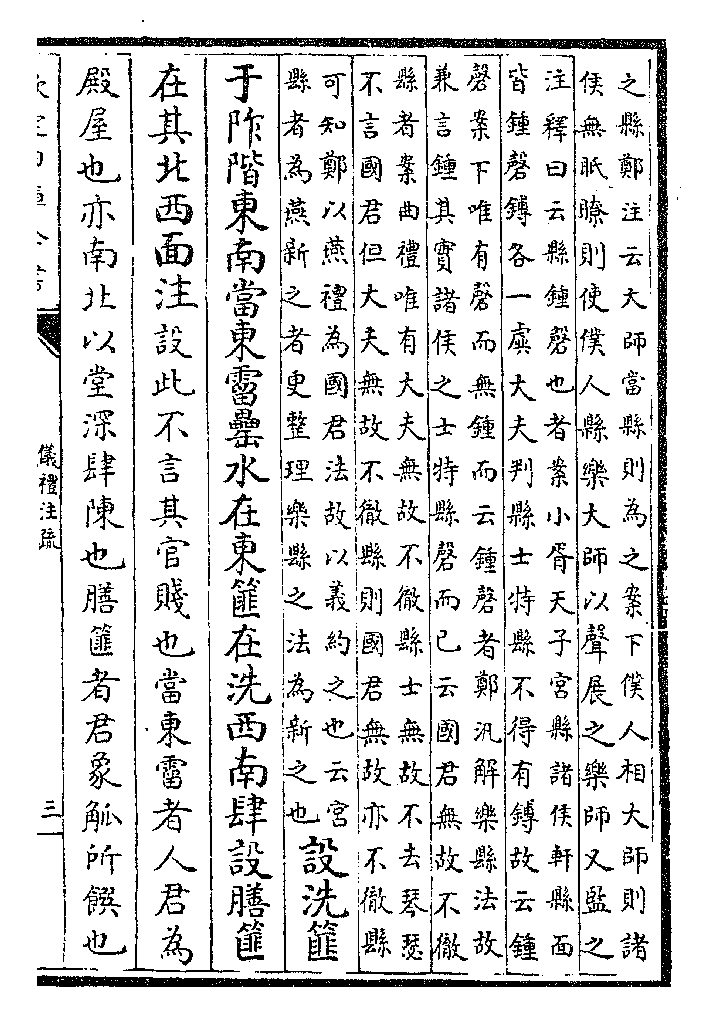 之縣鄭注云大師當縣則為之案下僕人相大師則諸
侯無眡瞭則使僕人縣樂大師以聲展之樂師又監之
注釋曰云縣鍾磬也者案小胥天子宮縣諸侯軒縣面
皆鍾磬鎛各一虡大夫判縣士特縣不得有鎛故云鍾
磬案下唯有磬而無鍾而云鍾磬者鄭汎解樂縣法故
兼言鍾其實諸侯之士特縣磬而已云國君無故不徹
縣者案曲禮唯有大夫無故不徹縣士無故不去琴瑟
不言國君但大夫無故不徹縣則國君無故亦不徹縣
可知鄭以燕禮為國君法故以義約之也云宮
縣者為燕新之者更整理樂縣之法為新之也
設洗篚
于阼階東南當東霤罍水在東篚在洗西南肆設膳篚
在其北西面注設此不言其官賤也當東霤者人君為
殿屋也亦南北以堂深肆陳也膳篚者君象觚所饌也
欽定四庫全書
儀禮注疏
三